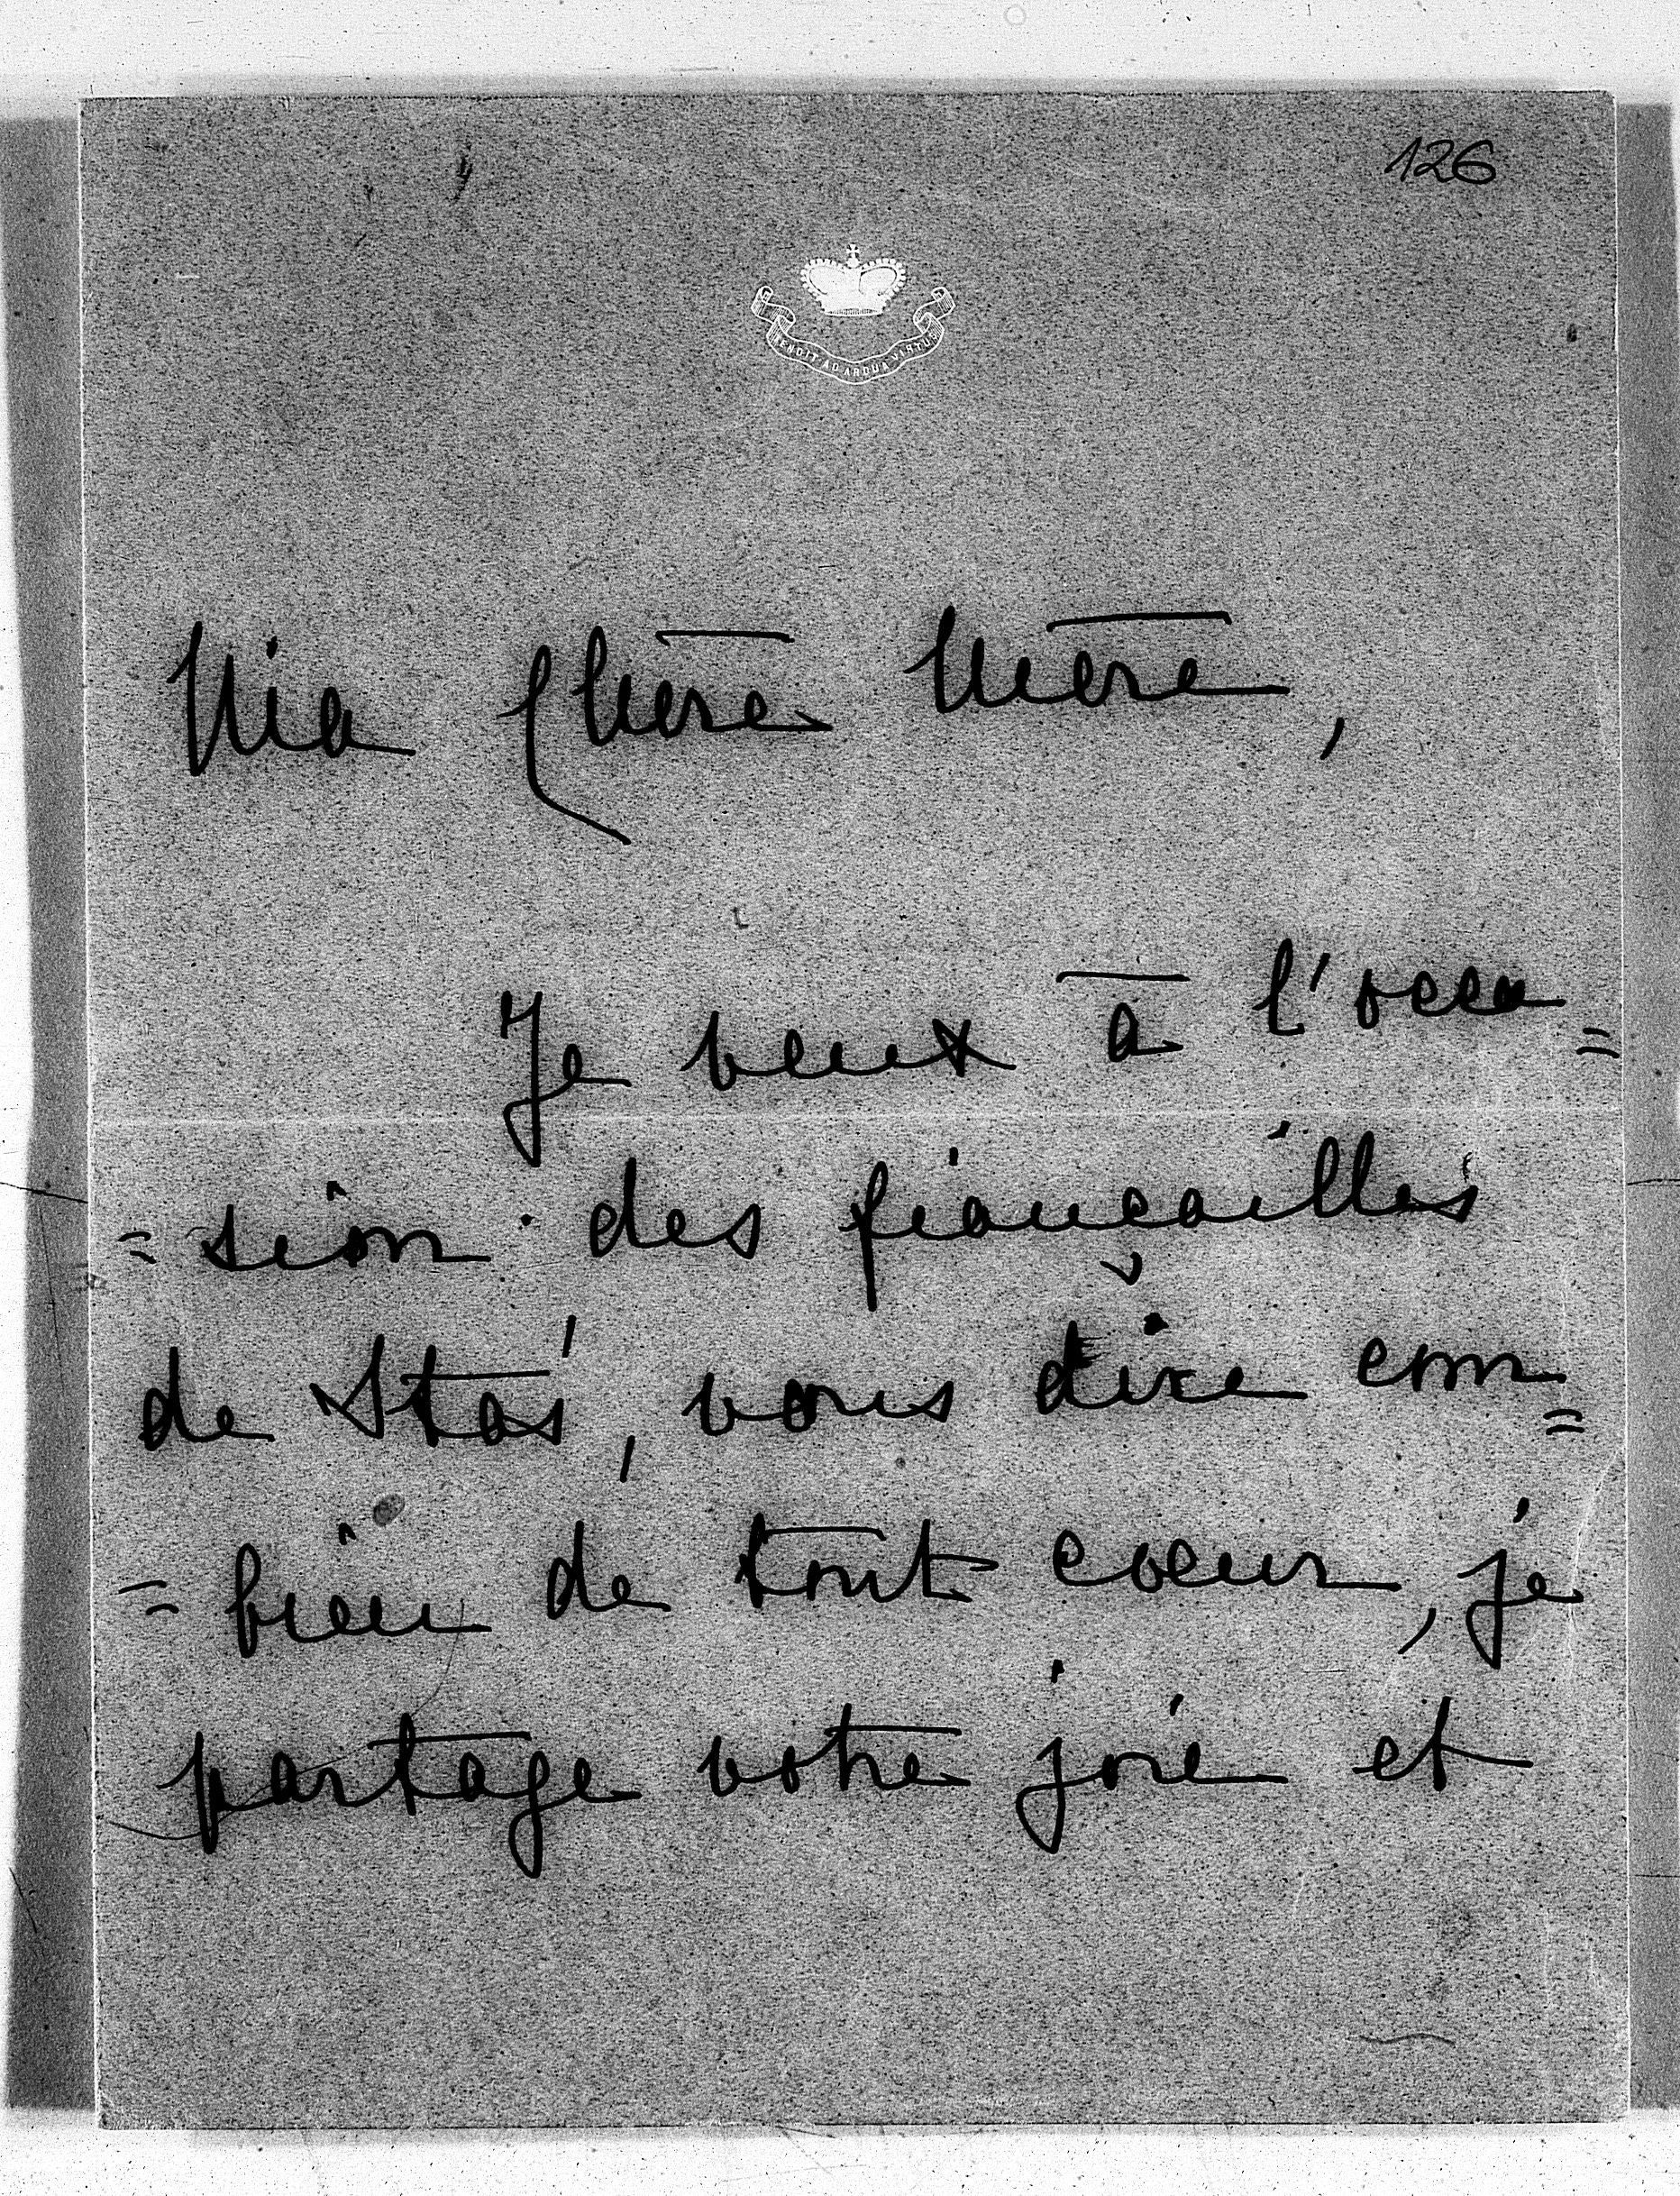 126
TENDIT AD ARDUA VIRTUS
Ma Chère Mère,
Je veux à l'occa=
=sion des fiançailles
de Staś, vous dire com=
=bien de tout coeur, je
partage votre joie et